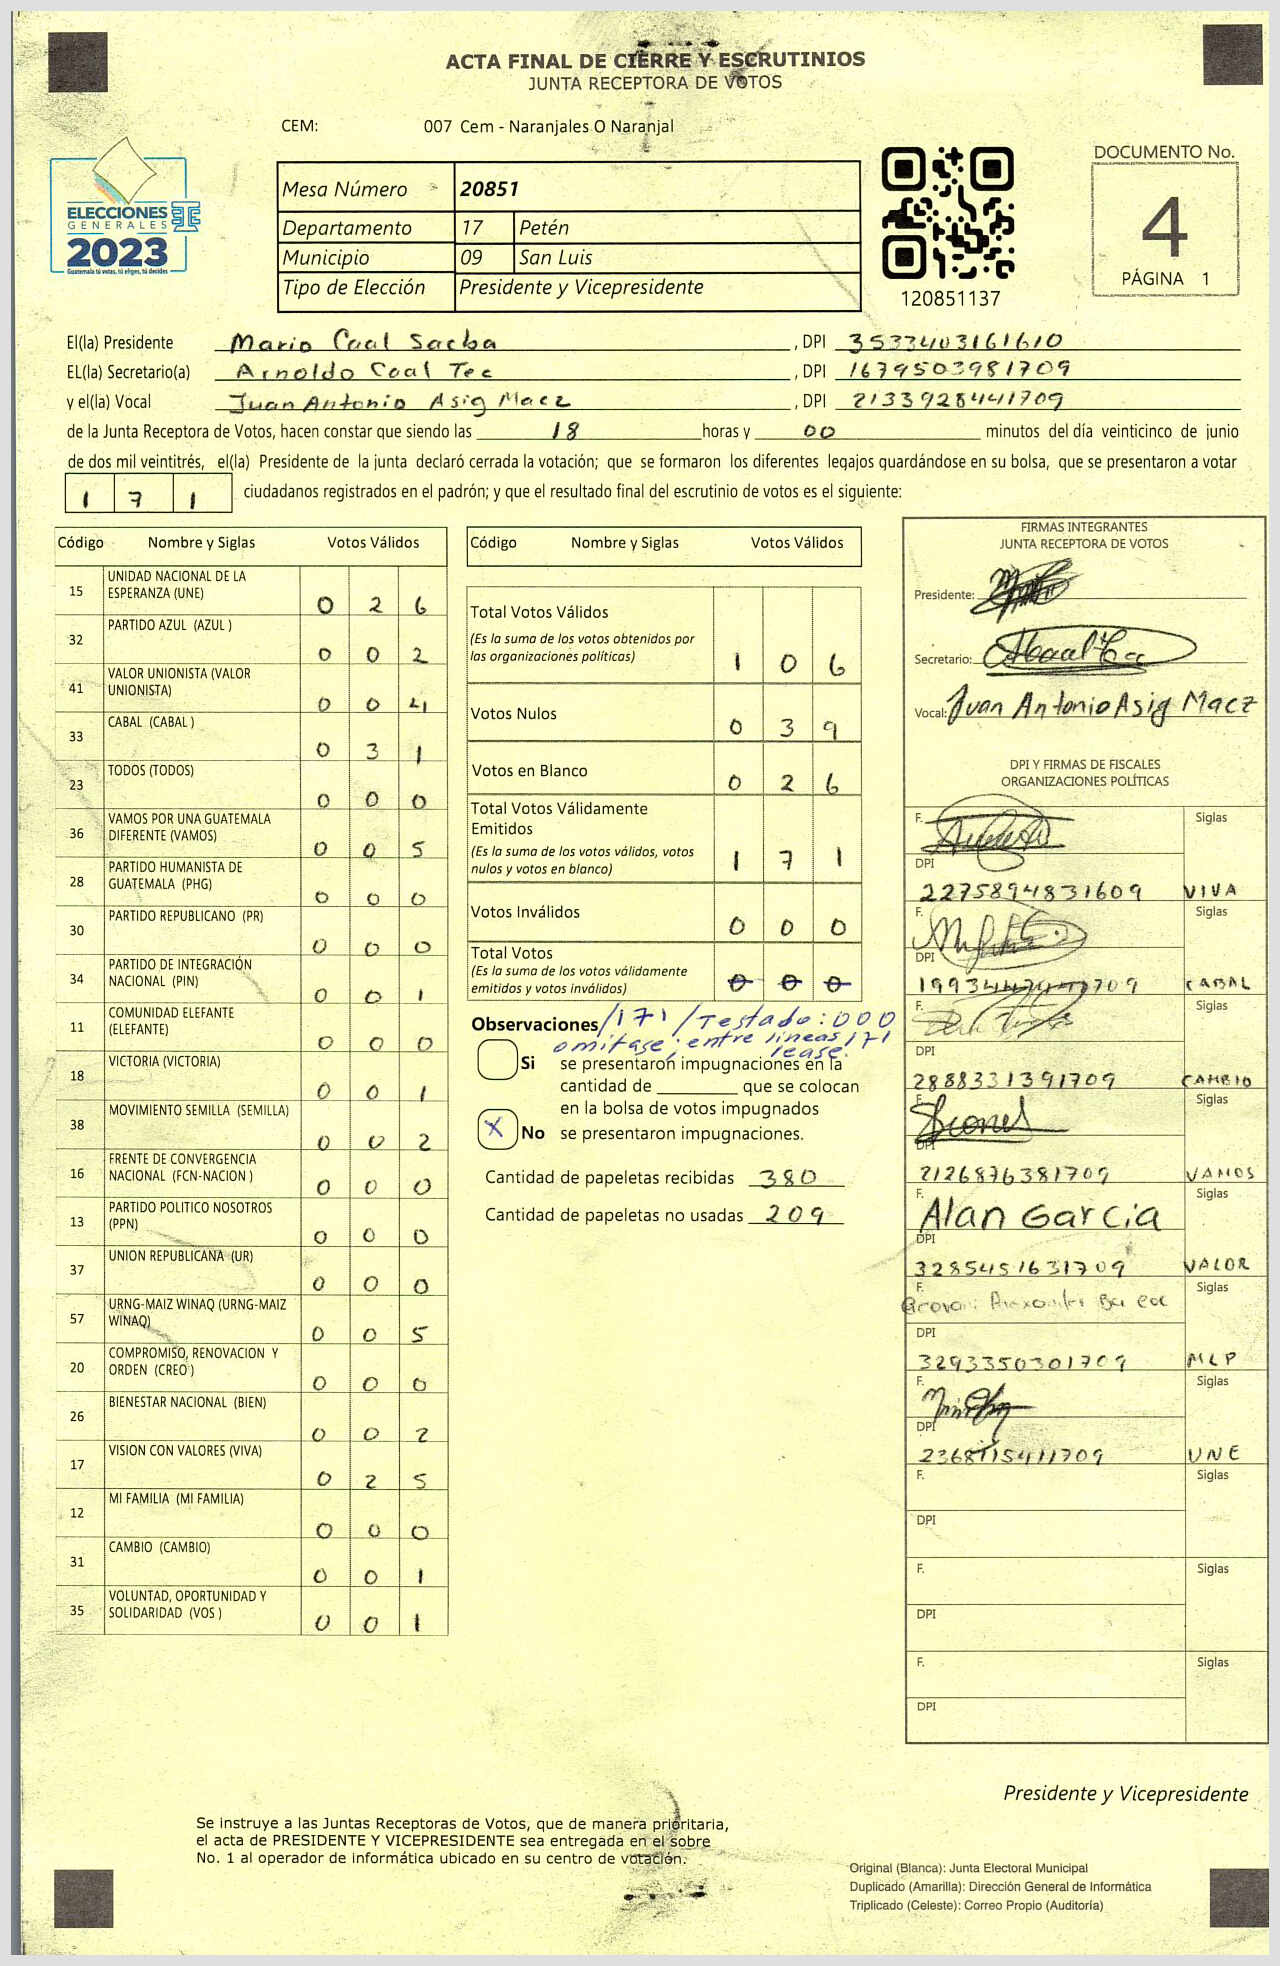 ACTA FINAL DE CIERRE Y ESCRUTINIOS
JUNTA RECEPTORA DE VOTOS
CEM: 007 Cem - Naranjales O Naranjal
ELECCIONES
GENERALES
2023
Guatemala tú votas, tú eliges, tú decides
Mesa Número 20851
Departamento 17 Petén
Municipio 09 San Luis
Tipo de Elección Presidente y Vicepresidente
120851137
DOCUMENTO No.
4
PÁGINA 1
El(la) Presidente Mario Caal Sacba , DPI 3533403161610
EL(la) Secretario(a) Arnoldo Caal Tec , DPI 1679503981709
y el(la) Vocal Juan Antonio Asig Macz , DPI 2133928441709
de la Junta Receptora de Votos, hacen constar que siendo las 18 horas y 00 minutos del día veinticinco de junio
de dos mil veintitrés, el(la) Presidente de la junta declaró cerrada la votación; que se formaron los diferentes legajos guardándose en su bolsa, que se presentaron a votar
1 7 1 ciudadanos registrados en el padrón; y que el resultado final del escrutinio de votos es el siguiente:
Código Nombre y Siglas Votos Válidos
15 UNIDAD NACIONAL DE LA ESPERANZA (UNE) 0 2 6
32 PARTIDO AZUL (AZUL ) 0 0 2
41 VALOR UNIONISTA (VALOR UNIONISTA) 0 0 4
33 CABAL (CABAL ) 0 3 1
23 TODOS (TODOS) 0 0 0
36 VAMOS POR UNA GUATEMALA DIFERENTE (VAMOS) 0 0 5
28 PARTIDO HUMANISTA DE GUATEMALA (PHG) 0 0 0
30 PARTIDO REPUBLICANO (PR) 0 0 0
34 PARTIDO DE INTEGRACIÓN NACIONAL (PIN) 0 0 1
11 COMUNIDAD ELEFANTE (ELEFANTE) 0 0 0
18 VICTORIA (VICTORIA) 0 0 1
38 MOVIMIENTO SEMILLA (SEMILLA) 0 0 2
16 FRENTE DE CONVERGENCIA NACIONAL (FCN-NACION ) 0 0 0
13 PARTIDO POLITICO NOSOTROS (PPN) 0 0 0
37 UNION REPUBLICANA (UR) 0 0 0
57 URNG-MAIZ WINAQ (URNG-MAIZ WINAQ) 0 0 5
20 COMPROMISO, RENOVACION Y ORDEN (CREO ) 0 0 0
26 BIENESTAR NACIONAL (BIEN) 0 0 2
17 VISION CON VALORES (VIVA) 0 2 5
12 MI FAMILIA (MI FAMILIA) 0 0 0
31 CAMBIO (CAMBIO) 0 0 1
35 VOLUNTAD, OPORTUNIDAD Y SOLIDARIDAD (VOS ) 0 0 1
Código Nombre y Siglas Votos Válidos
Total Votos Válidos
(Es la suma de los votos obtenidos por
las organizaciones políticas) 1 0 6
Votos Nulos 0 3 9
Votos en Blanco 0 2 6
Total Votos Válidamente
Emitidos
(Es la suma de los votos válidos, votos
nulos y votos en blanco) 1 7 1
Votos Inválidos 0 0 0
Total Votos
(Es la suma de los votos válidamente
emitidos y votos inválidos) 0 0 0
Observaciones /171/Testado: 000
omitase; entre lineas 171
lease.
Si se presentaron impugnaciones en la
cantidad de ________ que se colocan
en la bolsa de votos impugnados
X No se presentaron impugnaciones.
Cantidad de papeletas recibidas 380
Cantidad de papeletas no usadas 209
FIRMAS INTEGRANTES
JUNTA RECEPTORA DE VOTOS
Presidente:
Secretario:
Vocal: Juan Antonio Asig Macz
DPI Y FIRMAS DE FISCALES
ORGANIZACIONES POLÍTICAS
F. Siglas
DPI
2275894831609 VIVA
F. Siglas
DPI
CABAL
F. Siglas
DPI
2888331391709 CAMBIO
F. Siglas
DPI
2126876381709 VAMOS
F. Siglas
Alan Garcia
DPI
3285451631709 VALOR
F. Siglas
DPI
3293350301709 MLP
F. Siglas
DPI
UNE
F. Siglas
DPI
F. Siglas
DPI
F. Siglas
DPI
Presidente y Vicepresidente
Se instruye a las Juntas Receptoras de Votos, que de manera prioritaria,
el acta de PRESIDENTE Y VICEPRESIDENTE sea entregada en el sobre
No. 1 al operador de informática ubicado en su centro de votación.
Original (Blanca): Junta Electoral Municipal
Duplicado (Amarilla): Dirección General de Informática
Triplicado (Celeste): Correo Propio (Auditoría)